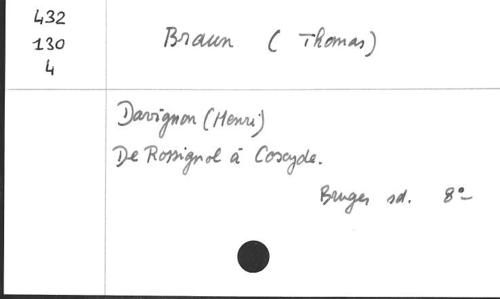 432
130
4
Braun ( Thomas)
Davignon (Henri)
De Rossignol à Coxyde.
Bruges sd. 8°